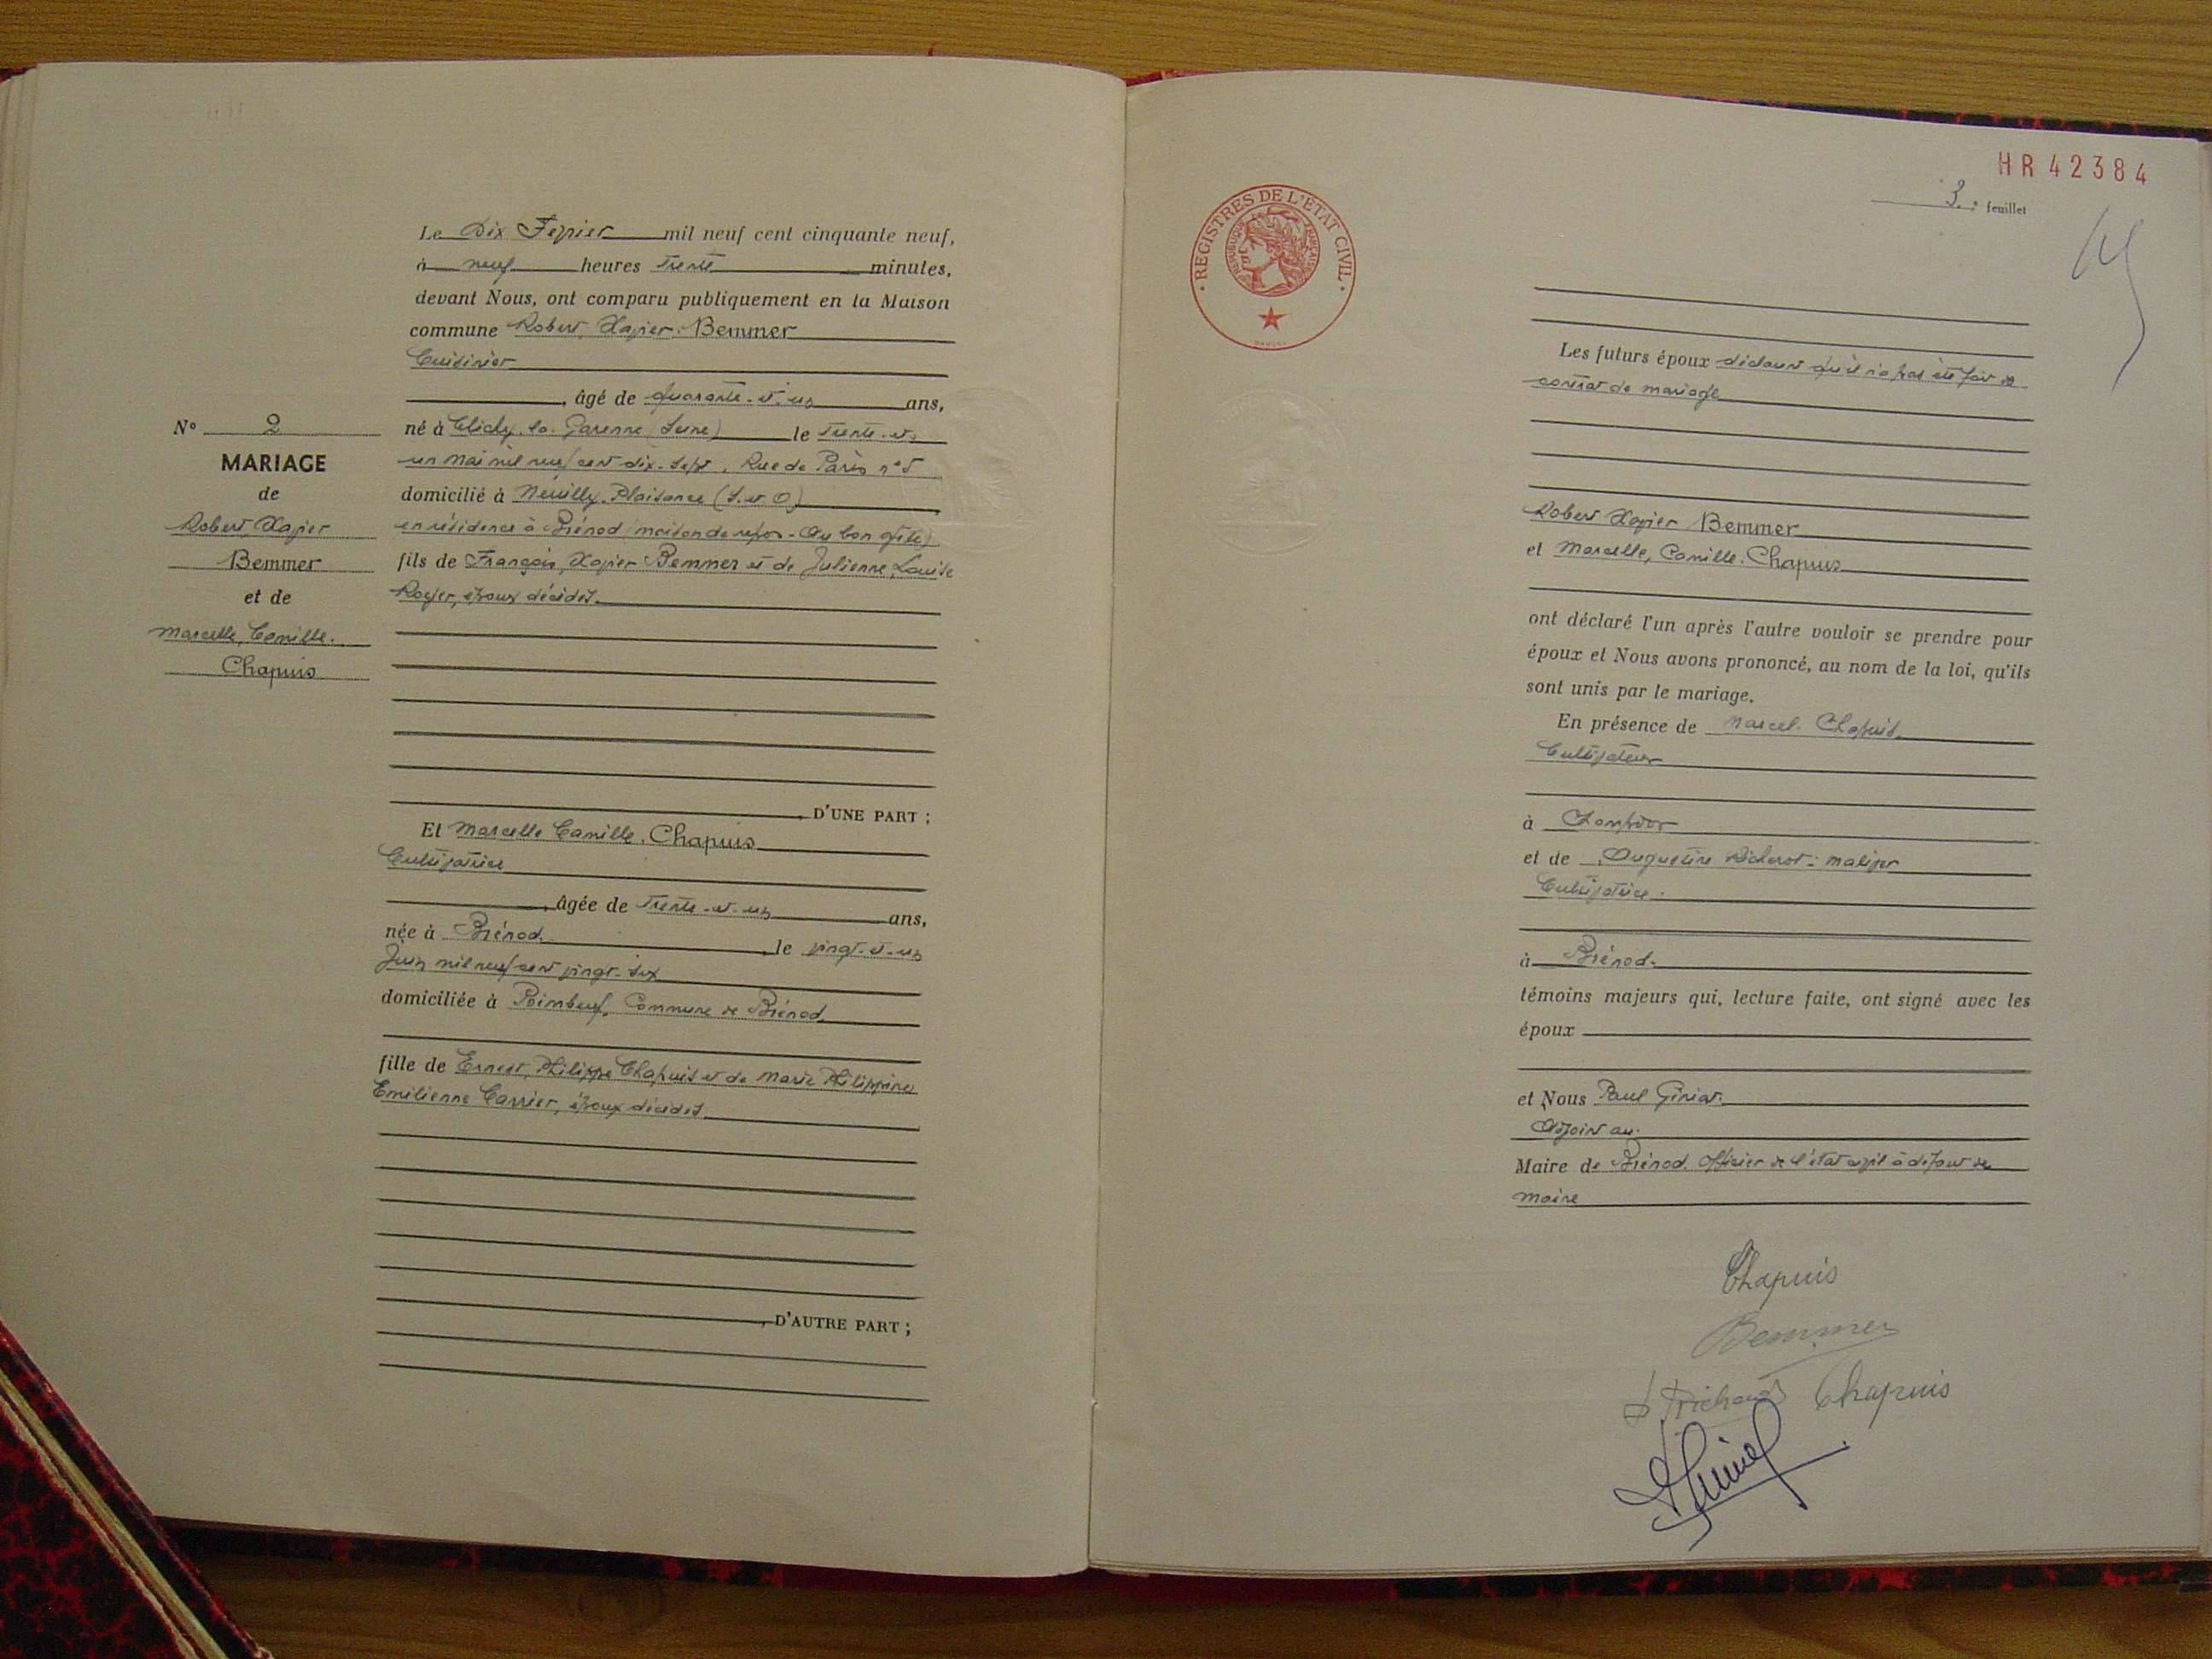 Le Dix Février mil neuf cent cinquante neuf,
à neuf heures trente minutes,
devant Nous, ont comparu publiquement en la Maison
commune Robert, Xavier. Bemmer
Cuisinier
, âgé de quarante-et-un ans,
né à Clichy-la-Garenne (Seine) le trente-et-
un mai mil neuf cent dix-sept, Rue de Paris n° 5
domicilié à Neuilly-Plaisance (S.et O)
en résidence à Brénod (maison de repos - Au bon gîte)
fils de François, Xavier Bemmer et de Julienne, Louise
Royer, époux décédés.
D'UNE PART ;
N° 2
MARIAGE
de
Robert, Xavier
Bemmer
et de
Marcelle, Camille.
Chapuis
Et Marcelle Camille. Chapuis
Cultivatrice
, âgée de trente-et-un ans,
née à Brénod. , le vingt-et-un
Juin mil neuf cent vingt-six
domiciliée à Commune de Brénod.
fille de Ernest, Philippe Chapuis et de Marie Philippine
Emilienne Carrier, époux décédés
, D'AUTRE PART ;
HR 42384
3. feuillet
REGISTRES DE L'ÉTAT CIVIL
REPUBLIQUE FRANÇAISE
Les futurs époux déclarent qu'il n'a pas été fait de
contrat de mariage
Robert Xavier Bemmer
et Marcelle, Camille. Chapuis
ont déclaré l'un après l'autre vouloir se prendre pour
époux et Nous avons prononcé, au nom de la loi, qu'ils
sont unis par le mariage.
En présence de Marcel. Chapuis
Cultivateur
à Champdor
et de Augustine
Cultivatrice.
à Brénod.
témoins majeurs qui, lecture faite, ont signé avec les
époux
et Nous Paul
Adjoint au.
Maire de Brénod. Officier de l'état civil à défaut de
maire
Chapuis
Bemmer
Chapuis